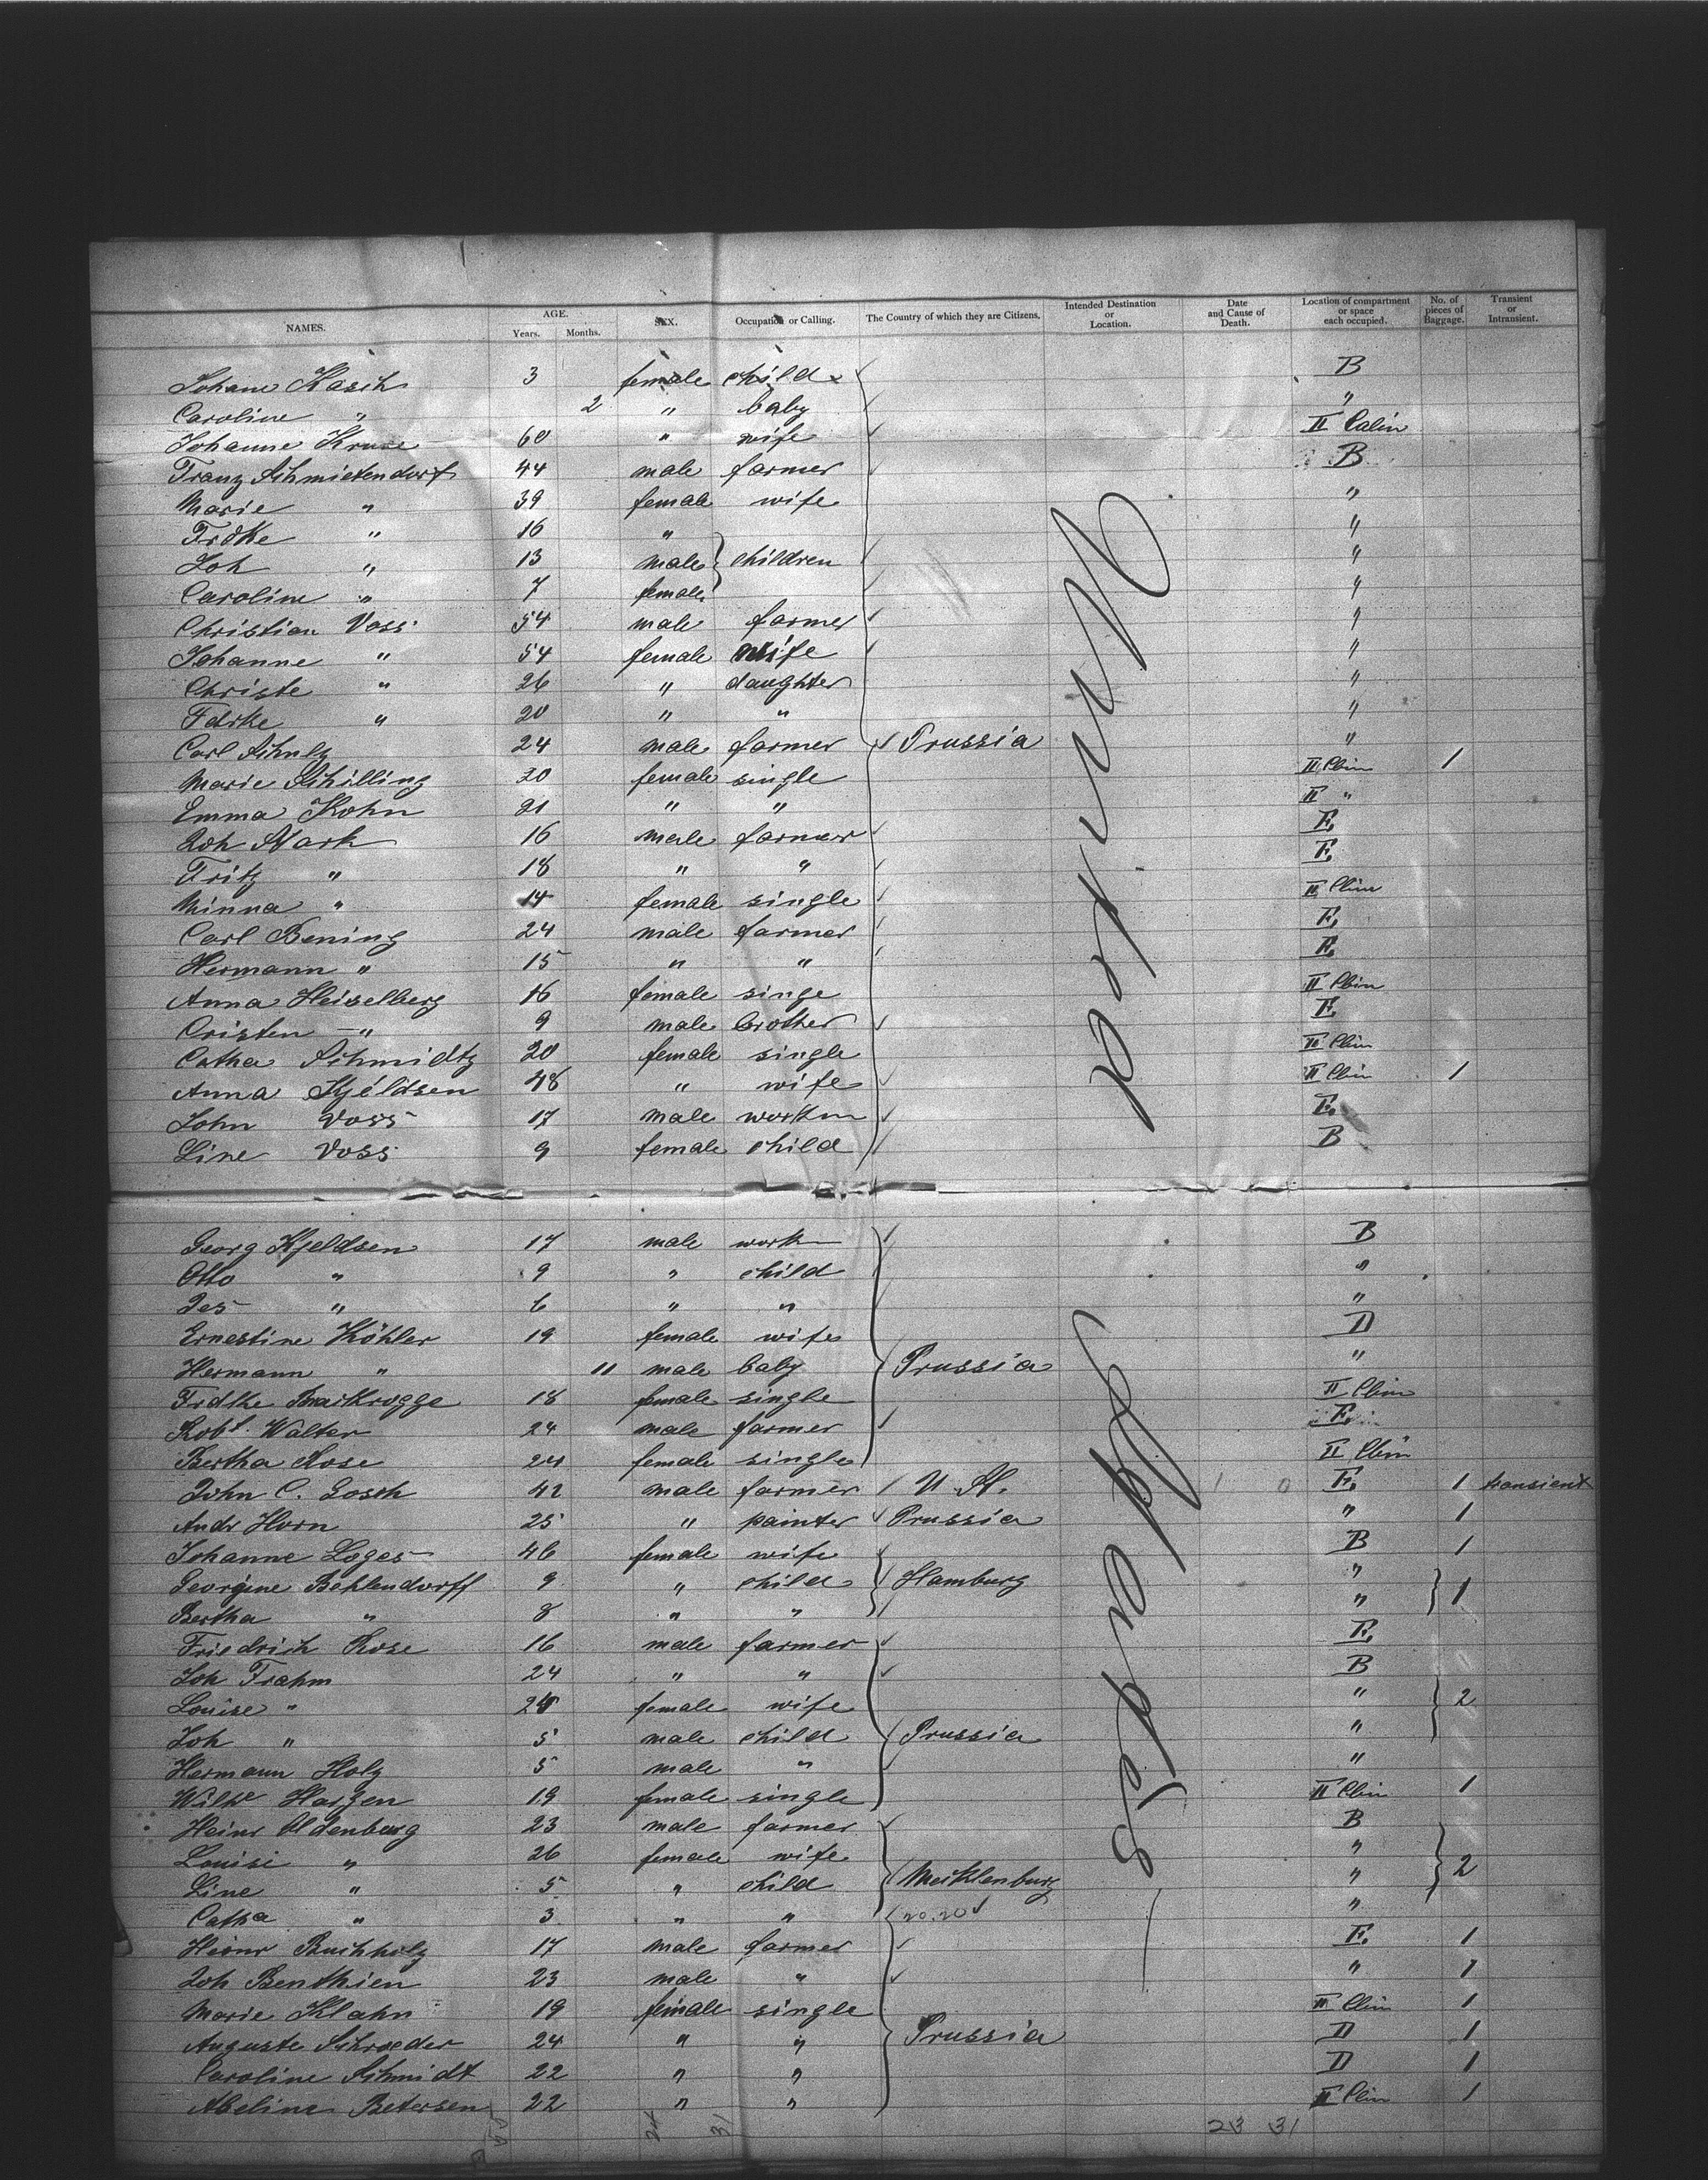 NAMES. AGE. Years. Months. SEX. Occupation or Calling. The Country of which they are Citizens. Intended Destination or Location. Date and Cause of Death. Location of compartment or space each occupied. No. of pieces of Baggage. Transient or Intransient.
Johane Kasch 3 female child B
Caroline " 2 " baby "
Johanne Kruse 60 " wife II Cabin
Franz Schmietendorf 44 male farmer B
Marie " 39 female wife "
Frdke " 16 " "
Joh " 13 male children "
Caroline " 7 female "
Christian Voss 54 male farmer "
Johanne " 54 female wife "
Christe " 26 " daughter "
Fdrke " 20 " " "
Carl Schulz 24 male farmer Prussia "
Marie Schilling 20 female single II Cbin 1
Emma Kohn 21 " " II "
Joh Stark 16 male farmer E.
Fritz " 18 " " E.
Minna " 14 female single II Cbin
Carl Bening 24 male farmer E.
Hermann " 15 " " E.
Anna Heiselberg 16 female singe II Cbin
Cristen " 9 male brother E.
Catha Schmidtz 20 female single II Cbin
Anna Kjeldsen 48 " wife II Cbin 1
John Voss 17 male workm E.
Line Voss 9 female child B
United
Georg Kjeldsen 17 male work B
Otto " 9 " child "
Jes " 6 " " "
Ernestine Köhler 19 female wife D
Hermann " 11 male baby Prussia "
Fridke 18 female single II Cbin
Robt. Walter 24 male farmer E.
Bertha Rose 24 female single II Cbin
John C. Gosch 42 male farmer U. St. E. 1 transient
Andr Horn 25 " painter Prussia " 1
Johanne Loges 46 female wife B 1
Georgine Behlendorff 9 " child Hamburg " 1
Bertha " 8 " " "
Friedrich Rose 16 male farmer E.
Joh Frahm 24 " " B
Louise " 24 female wife " 2
Joh " 5 male child Prussia "
Hermann Holz 5 male " "
Wilhe Harzen 19 female single II Cbin 1
Heinr Oldenburg 23 male farmer B
Louise " 26 female wife " 2
Line " 5 " child Mecklenburg "
Catha " 3 " " 20.20 "
Heinr Buchholz 17 male farmer E. 1
Joh Benthien 23 male " " 1
Marie Klahn 19 female single II Cbin 1
Auguste Schroeder 24 " " Prussia D 1
Caroline Schmidt 22 " " D 1
Abeline Petersen 22 " " II Cbin 1
States
24 31 23 31